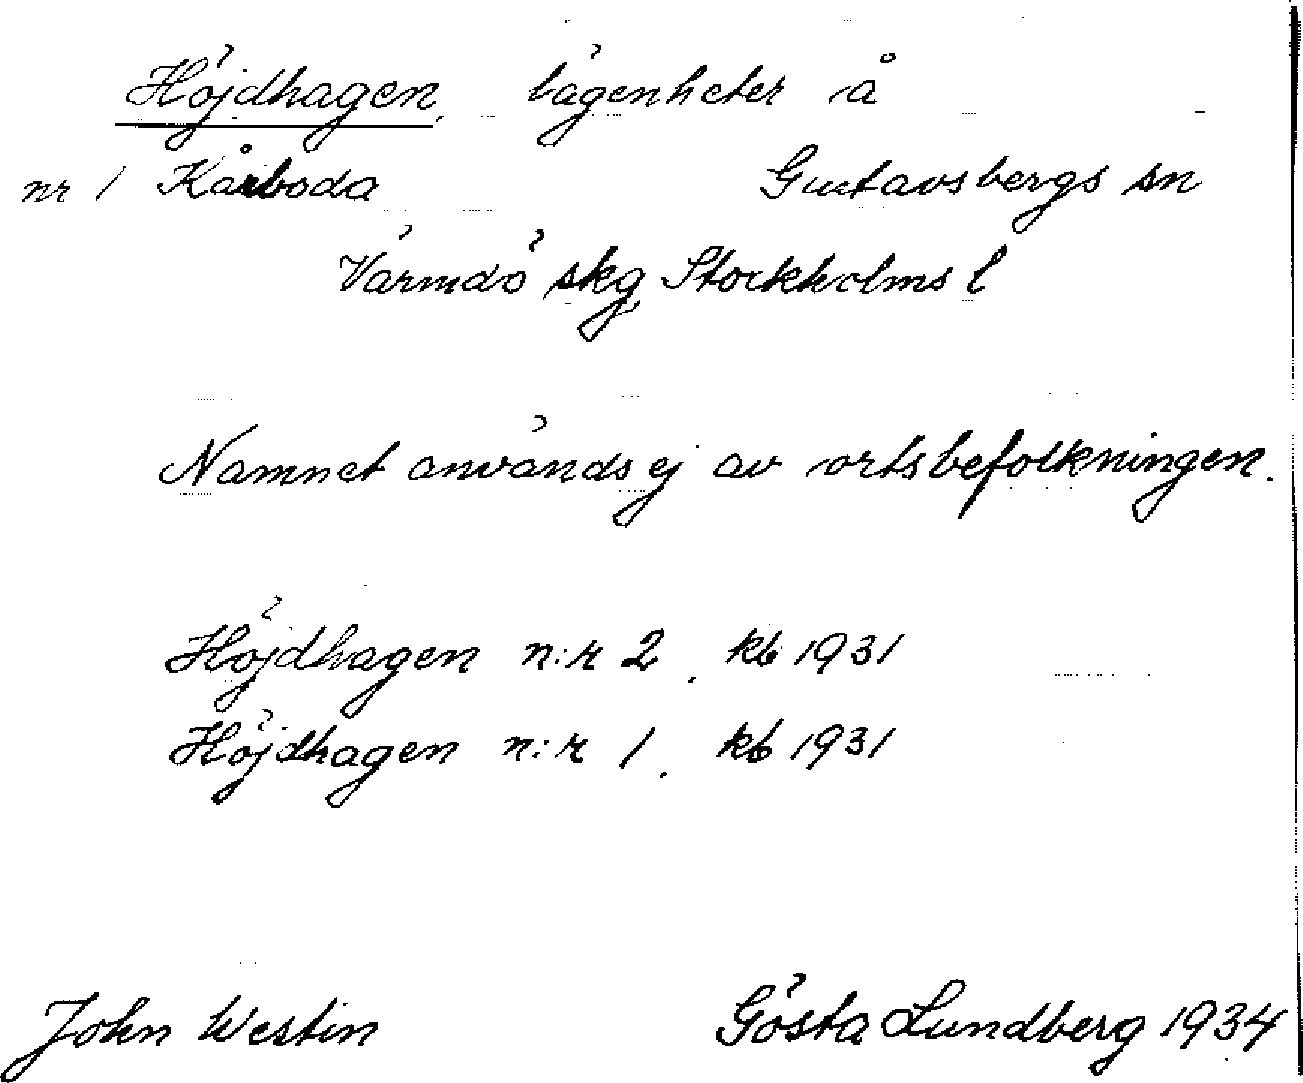 Höjdhagen, lägenheter å
nr 1 Kårboda Gustavsbergs sn
Värmdö skg, Stockholms l
Namnet används ej av ortsbefolkningen.
Höjdhagen n:r 2, kb 1931
Höjdhagen n:r 1, kb 1931
John Westin Gösta Lundberg 1934